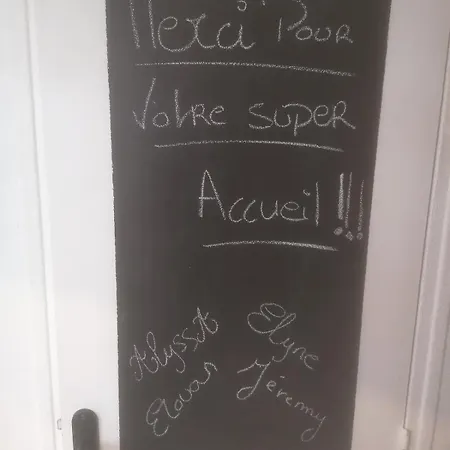 Merci Pour
Votre super
Accueil !!!
Alyssa Elyne
Jérémy